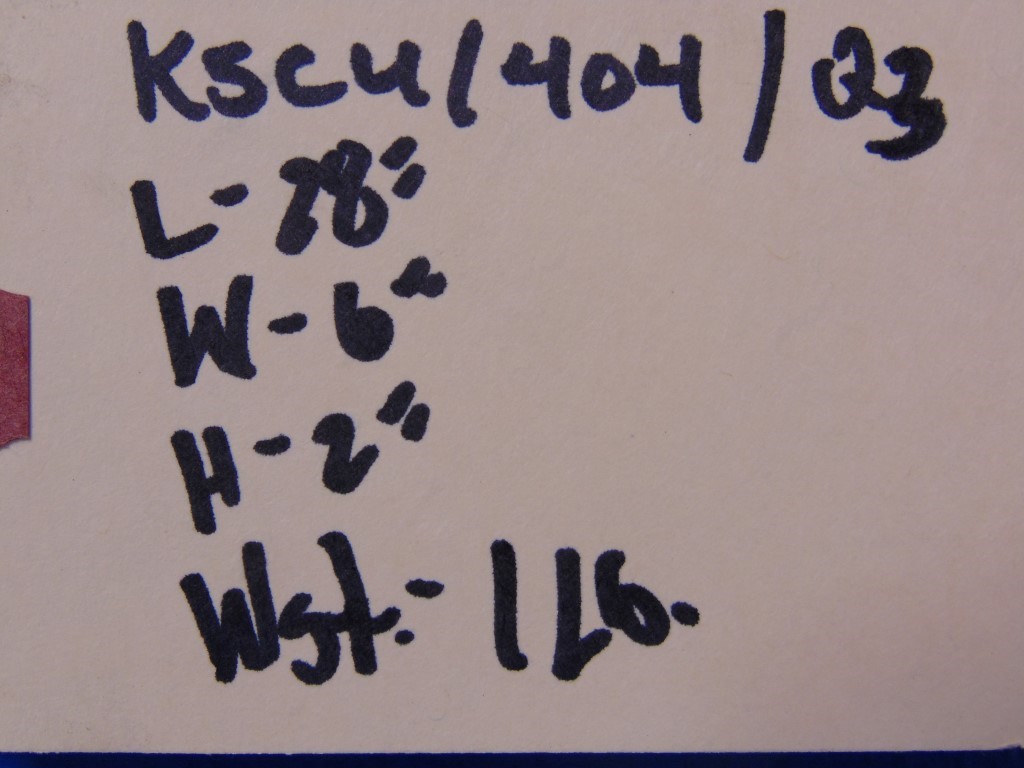 KSCU/404/23
L- 28"
W-6"
H-2"
Wgt.- 1 Lb.